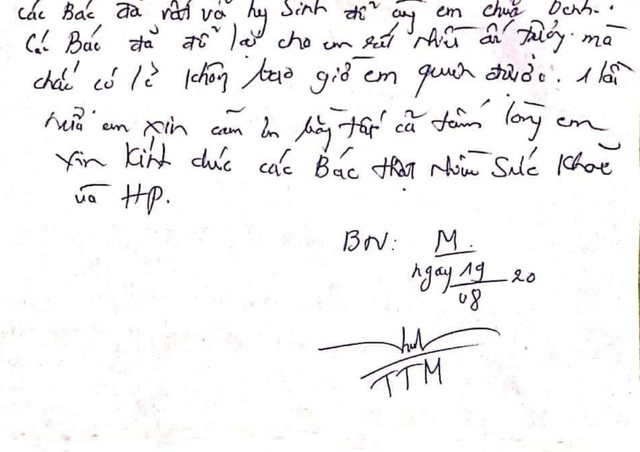 các Bác đã vất vả hy sinh để cứu em chữa bệnh.
Các Bác đã để lại cho em rất nhiều ấn tượng mà
chắc có lẽ không bao giờ em quên được. 1 lần
nữa em xin cảm ơn bằng tất cả tấm lòng em
xin kính chúc các Bác thật nhiều sức khoẻ
và HP.
BN: M.
ngày 19/08 20
TTM